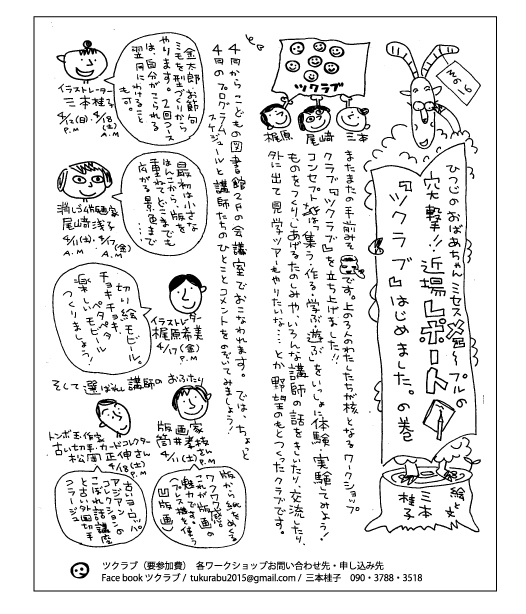 No.6
ひつじのおばあちゃん ミセスメエ〜プルの
突撃!!近場レポート
『ツクラブ』はじめました。の巻
絵と文
三本
桂子
ツクラブ
梶原
尾崎
三本
またまたの手前みそです。上の3人のわたしたちが核となるワークショップ
クラブ『ツクラブ』を立ち上げました!!
コンセプトは「集う・作る・学ぶ・遊ぶ」をいっしょに体験・実験してみよう!
ものをつくり、しあげるたのしみや、いろんな講師の話をきいたり、交流したり、
外に出て見学ツアーもやりたいな…とか野望のもとつくったクラブです。
4月からこどもの図書館2Fの会議室でおこなわれます。では、ちょっと
4月のプログラムスケジュールと講師たちのひとことコメントをのぞいてみましょう!
金太郎お節句
ミモを型づくりから
やります。2回コース
は、自分がこられる
翌月にわけること
も可。
イラストレーター
三本桂子
4/12(日)・4/18(土)
P.M A.M
最初は小さな
はんこから、版を
重ねてどこまでも
広がる景色まで…
消しゴム版画家
尾崎浅子
4/11(土)・4/17(金)
A.M A.M
切り絵モビール。
チョキチョキ、
ペタペタ
楽しいモビール
つくりましょう!
イラストレーター
梶原希美
4/17(金)
P.M
そして選ばれし講師のおふたり
版画家
筒井孝枝さん
4/11(土)
P.M
版から紙をめくる
ワクワク感。
これが版画の
魅力です。
(プレス機を使う
凹版画)
トンボ玉作家
古い切手・カードコレクター
松岡正伸さん
4/18(土)
P.M
古いヨーロッパ、
アジアンの
コレクションの
こぼれ話の講座
と古い外国切手
コラージュ
ツクラブ(要参加費) 各ワークショップお問い合わせ先・申し込み先
Face book ツクラブ / tukurabu2015@gmail.com / 三本桂子 090・3788・3518